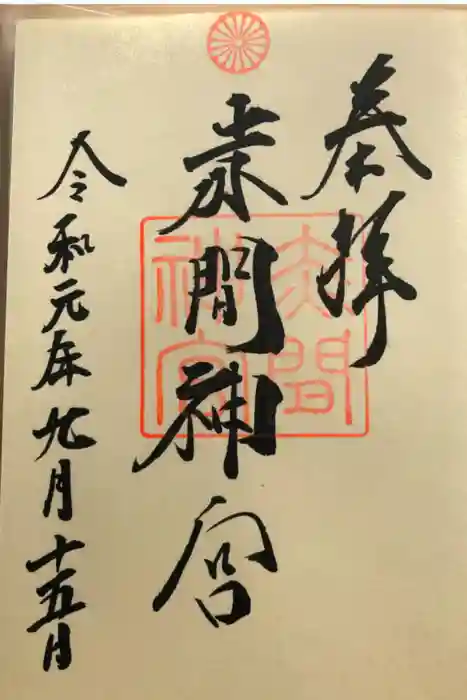 奉拝
赤間神宮
赤間
神宮
令和元年九月十五日